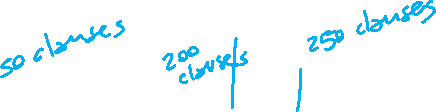 50 clauses
200
clauses
250 clauses